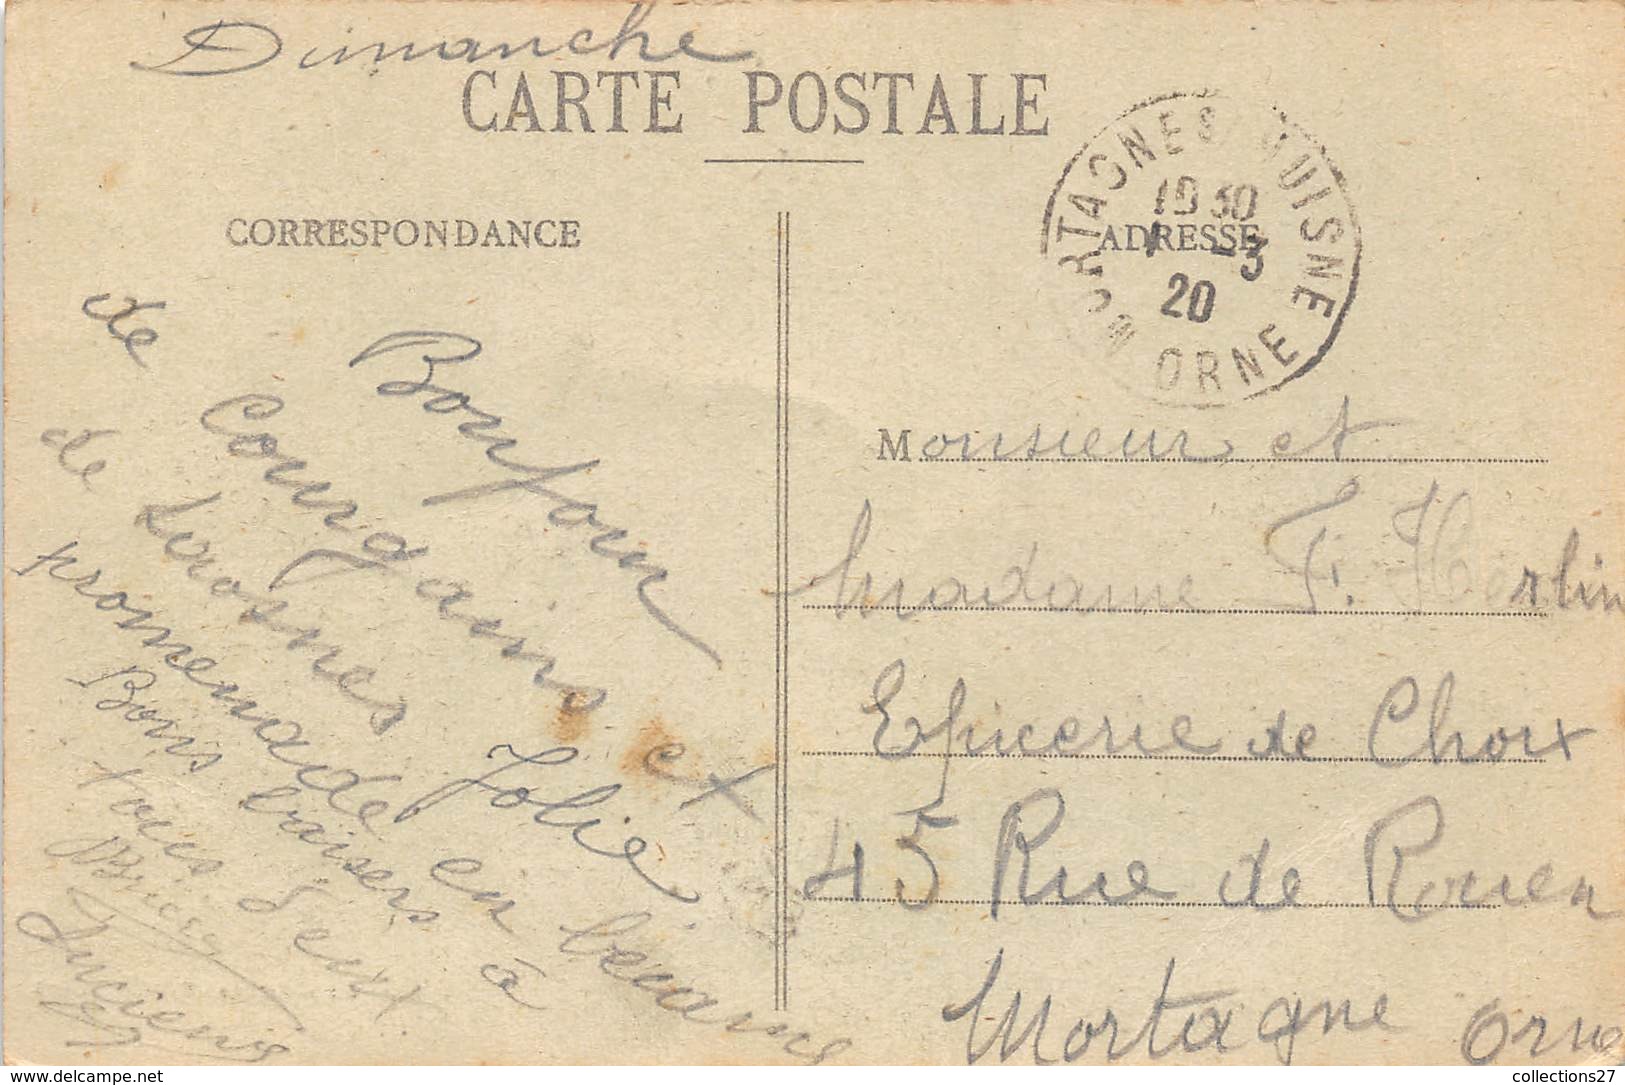 Dimanche
CARTE POSTALE
CORRESPONDANCE
ADRESSE
MORTAGNES HUISNE
10 30
1 -3
20
ORNE
Bonjour
de Courgains et
de Louosnes Jolie
promenade en
Bons baisers à
tous deux
Lucienne
Monsieur et
Madame F. Herlin
Epicerie de Choix
45 Rue de Rouen
Mortagne Orne
collections27